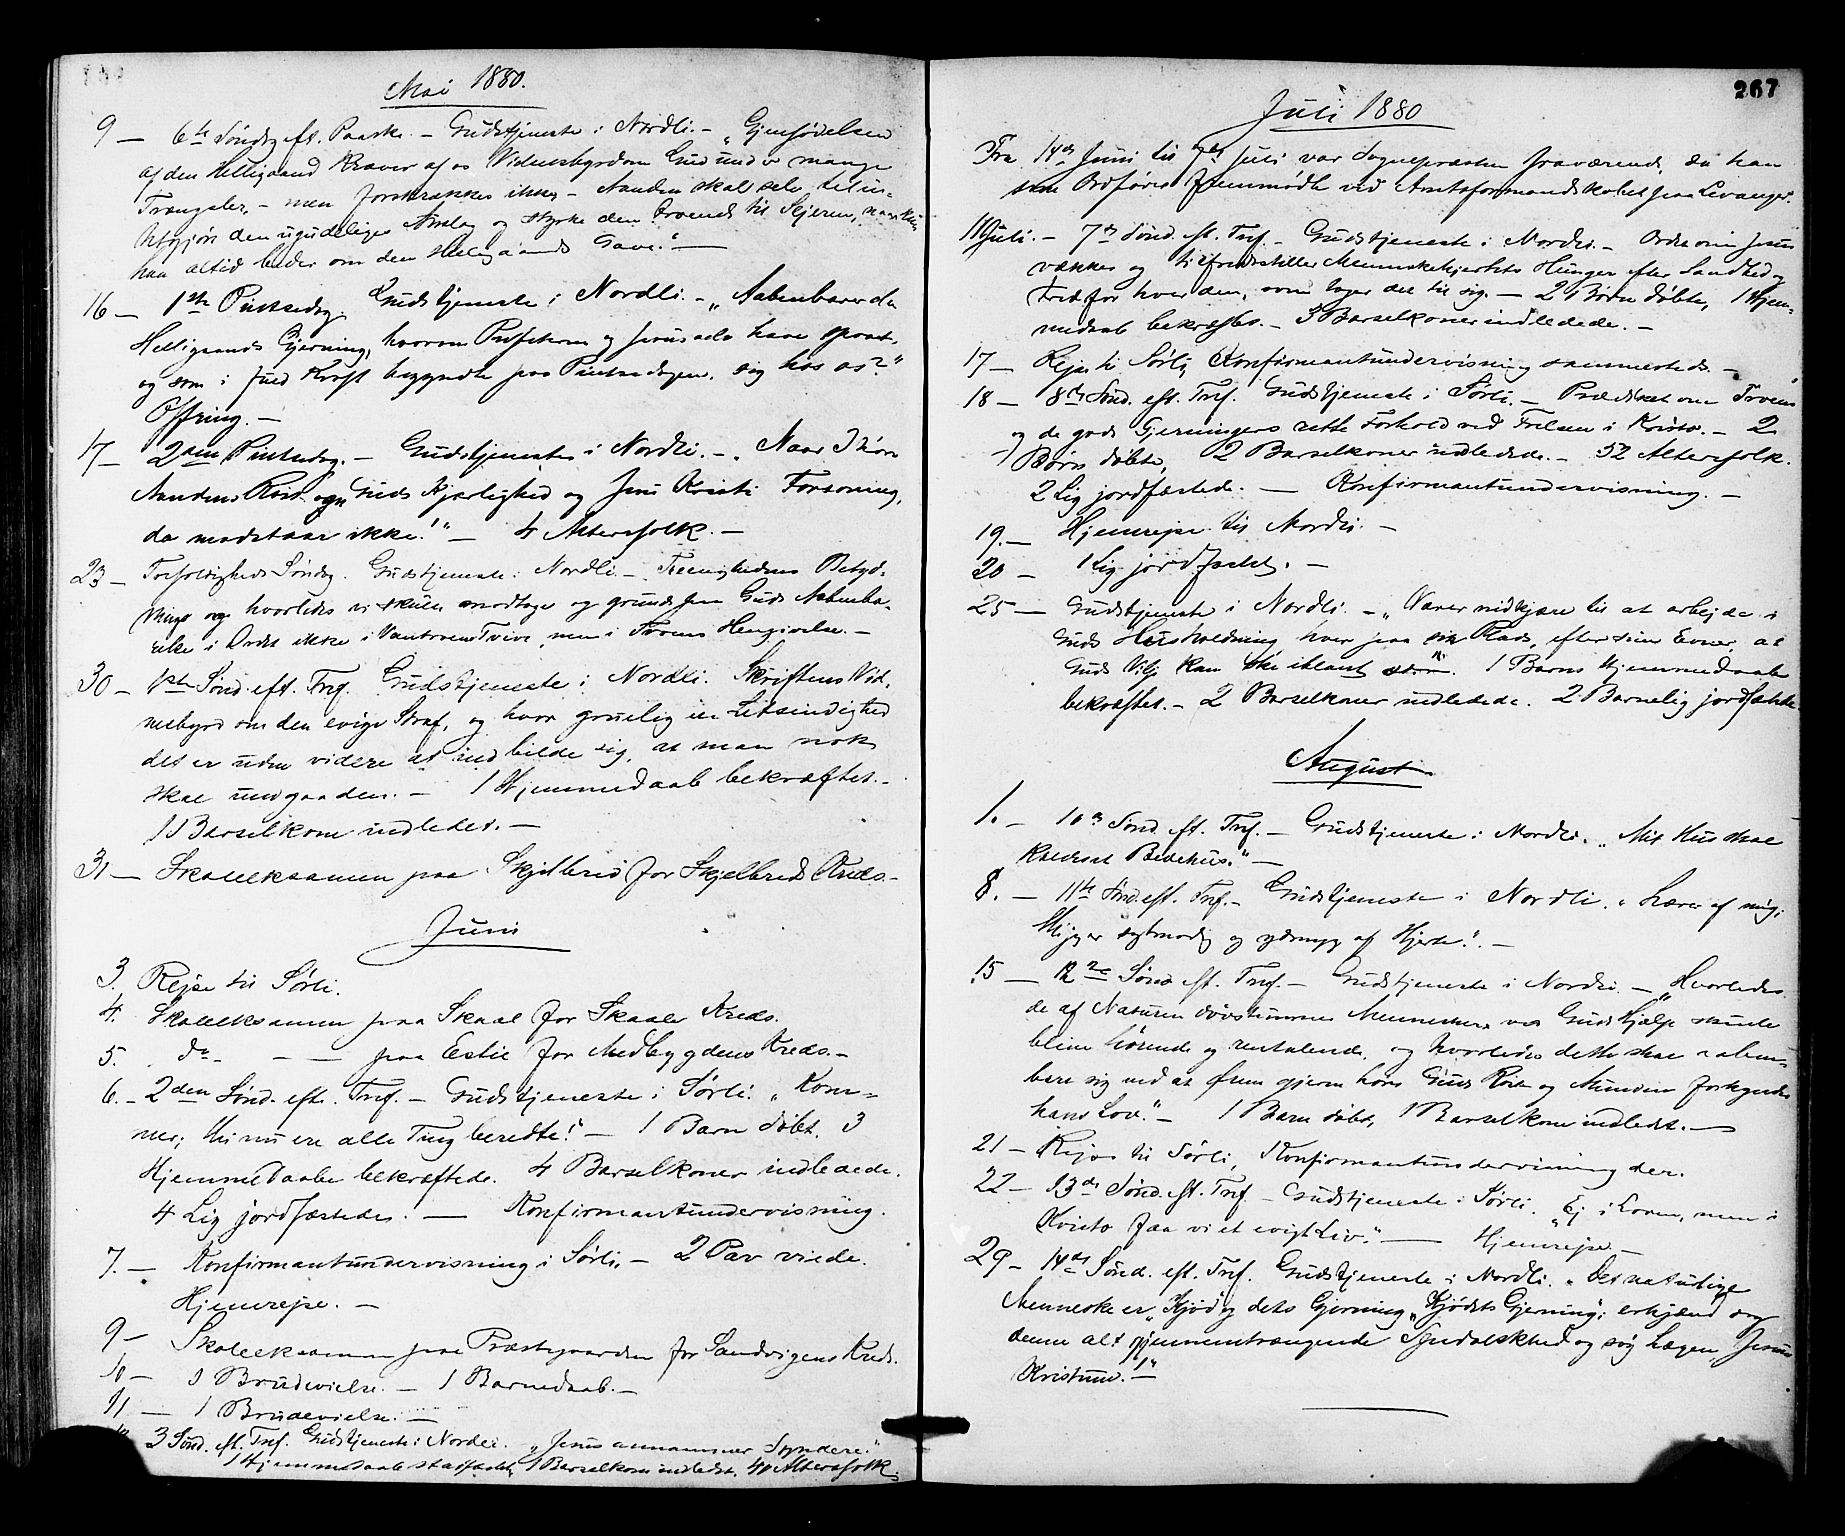 Mai 1880.
9 – 6te Søndag eft. Paaske. – Gudstjeneste i Nordli. – „Gjenfødelsen
af den Helligaand kræver af os Vidnesbyrd om Gud under mange
Trængsler, – men forskrækkes ikke – Aanden skal selv
den ugudeliges Anslag og styrke den troende til Sejeren, naar kun
han altid beder om den Helligaands Gave.“ –
16 – 1ste Pintsedag. Gudstjeneste i Nordli. – „Aabenbarer den
Helligaands Gjerning, hvorom Profeterne og Jesus selv have spaaet,
og som i fuld Kraft begyndte paa Pintsedagen, sig hos os?“
Offring. –
17 – 2den Pintsedag. – Gudstjeneste i Nordli. – „Naar I høre
Aandens Røst om Guds Kjærlighed og Jesu Kristi Forsoning,
da modstaar ikke!“ – 4 Altersfolk. –
23 – Trefoldigheds Søndag. Gudstjeneste i Nordli – Treenighedens Betyd-
ning og hvorledes vi skulle modtage og grunde paa Guds Aabenba-
relse i Ordet ikke i Vantroens Tvivl, men i Troens Hengivelse. –
30 – 1ste Sønd. eft. Tref. Gudstjeneste i Nordli. Skriftens Vid-
nesbyrd om den evige Straf, og hvor gruelig en Letsindighed
det er uden videre at indbilde sig, at man nok
skal undgaa den. – 1 Hjemmedaab bekræftet. –
1 Barselkone indledet. –
31 – Skoleeksamen paa Skjelbred for Skjelbred Kreds. –
Juni
3. Rejse til Sørli.
4. Skoleeksamen paa Skaal for Skaale Kreds.
5. do – – paa Estil for Medbygdens Kreds. –
6. – 2den Sønd. eft. Tref. – Gudstjeneste i Sørli. „Kom-
mer; thi nu ere alle Ting beredte!“ – 1 Barn døbt. 3
Hjemmedaabe bekræftede. 4 Barselkoner indledede.
4 Lig jordfæstede. – Konfirmantundervisning.
7. – Konfirmantundervisning i Sørli. – 2 Par viede.
Hjemrejse. –
9 – Skoleeksamen paa Præstegaarden for Sandvigens Kreds.
10 – 1 Brudevielse. – 1 Barnedaab. –
11 – 1 Brudevielse. –
3 Sønd. eft. Tref. Gudstjeneste i Nordli. „Jesus annammer Syndere.“
1 Hjemmedaab stadfæstet, 1 Barselkone indledet. 40 Altersfolk.
267
Juli 1880
Fra 14de Juni til Juli var Sognepræsten fraværende, da han
som Ordfører fremmødte ved Amtsformandskabet paa Levanger.
11 Juli. – 7de Sønd. eft. Tref. – Gudstjeneste i Nordli. – Ordet om Jesus
vækker og tilfredsstiller Menneskehjertets Hunger efter Sandhed og
Fred for hver den, som tager det til sig. – 2 Børn døbte, 1 Hjem-
medaab bekræftet. – 3 Barselkoner indledede. –
17 – Rejse til Sørli, Konfirmantundervisning sammesteds. –
18 – 8de Sønd. eft. Tref. Gudstjeneste i Sørli. – Prædiket om Troens
og de gode Gjerningers rette Forhold ved Frelsen i Kristo. – 2
Børn døbte, 2 Barselkoner indledede. – 52 Altersfolk.
2 Lig jordfæstede. – Konfirmantundervisning. –
19. – Hjemrejse til Nordli. –
20 – 1 Lig jordfæstet. –
25 – Gudstjeneste i Nordli. – „Værer nidkjære til at arbejde i
Guds Husholdning hver paa sin Plads, efter sine Evner, at
Guds Vilje kan ske iblant 1 Barns Hjemmedaab
bekræftet. – 2 Barselkoner indledede. 2 Barnelig jordfæstede.
August
1. – 10de Sønd. eft. Tref. – Gudstjeneste i Nordli. „Mit Hus skal
kaldes et Bedehus.“ –
8. – 11te Sønd. eft. Tref. – Gudstjeneste i Nordli. „Lærer af mig;
thi jeg er sagtmodig og ydmyg af Hjertet“. –
15 – 12te Sønd. eft. Tref. – Gudstjeneste i Nordli. – „Hvorledes
de af Naturen døvstumme Mennesker ved Guds Hjælp skulle
blive hørende og rettalende, og hvorledes dette skal aaben-
bare sig ved at Øret gjerne hører Guds Røst og Munden forkynder
hans Lov.“ – 1 Barn døbt, 1 Barselkone indledet. –
21 – Rejse til Sørli, Konfirmantundervisning der.
22 – 13de Sønd. eft. Tref – Gudstjeneste i Sørli. „Ej i Loven, men i
Kristo faa vi et evigt Liv“. – Hjemrejse –
29 – 14de Sønd. eft. Tref. Gudstjeneste i Nordli. „Det naturlige
Menneske er „Kjød og dets Gjerning „Kjødets Gjerning“; erkjend og
denne alt gjennemtrængende Spedalskhed og søg Lægen Jesum
Kristum.“ –